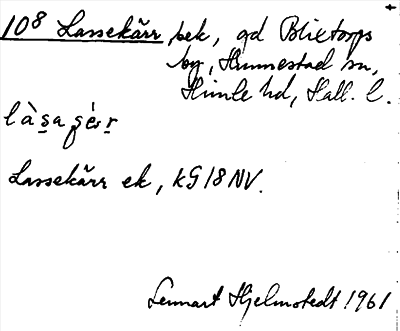 10⁸ Lassekärr, bek, gd Blixtorps
by, Hunnestad sn,
Himle hd, Hall. l.
Lassekärr ek, KG18NV.
Lennart Hjelmstedt 1961